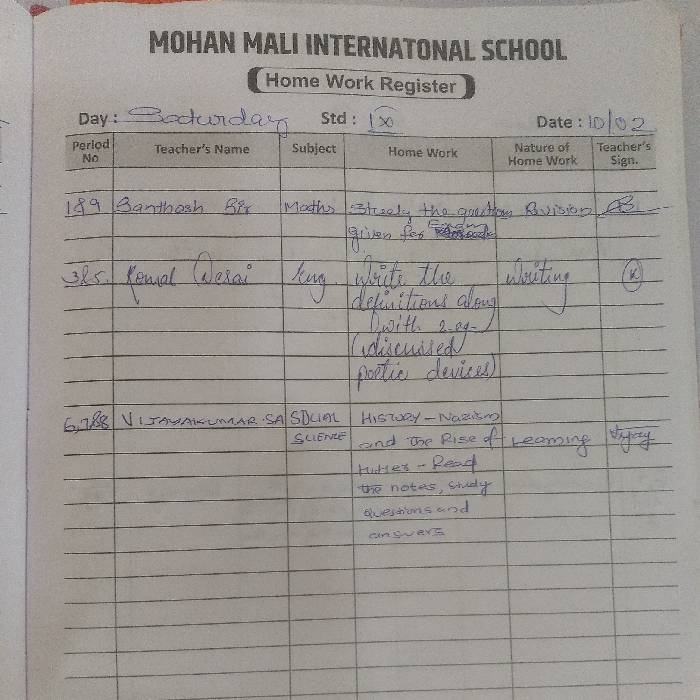 MOHAN MALI INTERNATONAL SCHOOL
Home Work Register
Day : Saturday Std : IX Date : 10/02
Period No Teacher's Name Subject Home Work Nature of Home Work Teacher's Sign.
1&9 Santhosh Sir Maths Study the question Revision
given for Exam
3&5. Komal Desai Eng. Write the Writing
definitions along
with 2 eg-
(discussed
poetic devices)
6,7&8 VIJAYAKUMAR.SA SOCIAL HISTORY - Nazism
SCIENCE and the Rise of Learning Vijay
Hitler - Read
the notes, study
questions and
answers